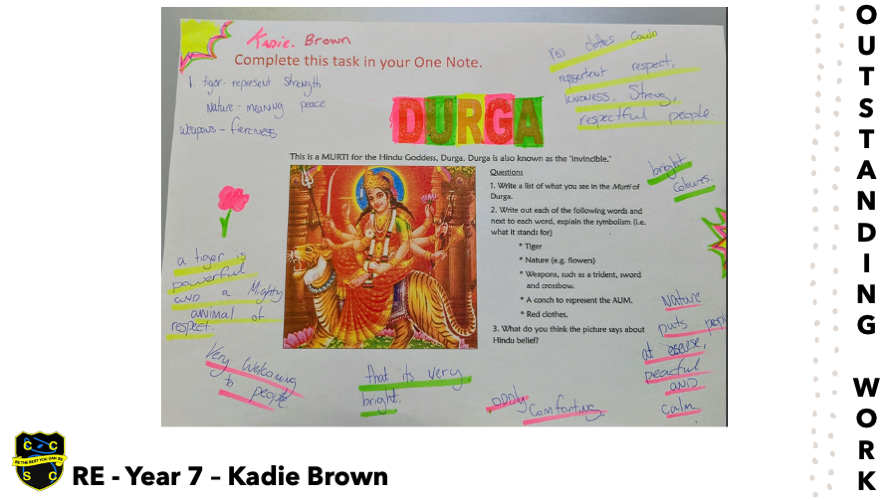 Kadie. Brown
Complete this task in your One Note.
tiger - represent strength
Nature - meaning peace
weapons - fierceness
red clothes could
reppertent respect,
kindness, Strong,
respectful people.
DURGA
This is a MURTI for the Hindu Goddess, Durga. Durga is also known as the 'invincible.'
bright
colours.
Questions
1. Write a list of what you see in the Murti of
Durga.
2. Write out each of the following words and
next to each word, explain the symbolism (i.e.
what it stands for)
* Tiger
* Nature (e.g. flowers)
* Weapons, such as a trident, sword
and crossbow.
* A conch to represent the AUM.
* Red clothes.
3. What do you think the picture says about
Hindu belief?
a tiger is
powerful
and a Mighty
animal of
respect.
Nature
puts peopl
at esease,
peacful
AND
calm.
Very Welcoming
to people
that its very
bright.
oddly
comforting.
C C
BE THE BEST YOU CAN BE
S C
RE - Year 7 – Kadie Brown
OUTSTANDING WORK